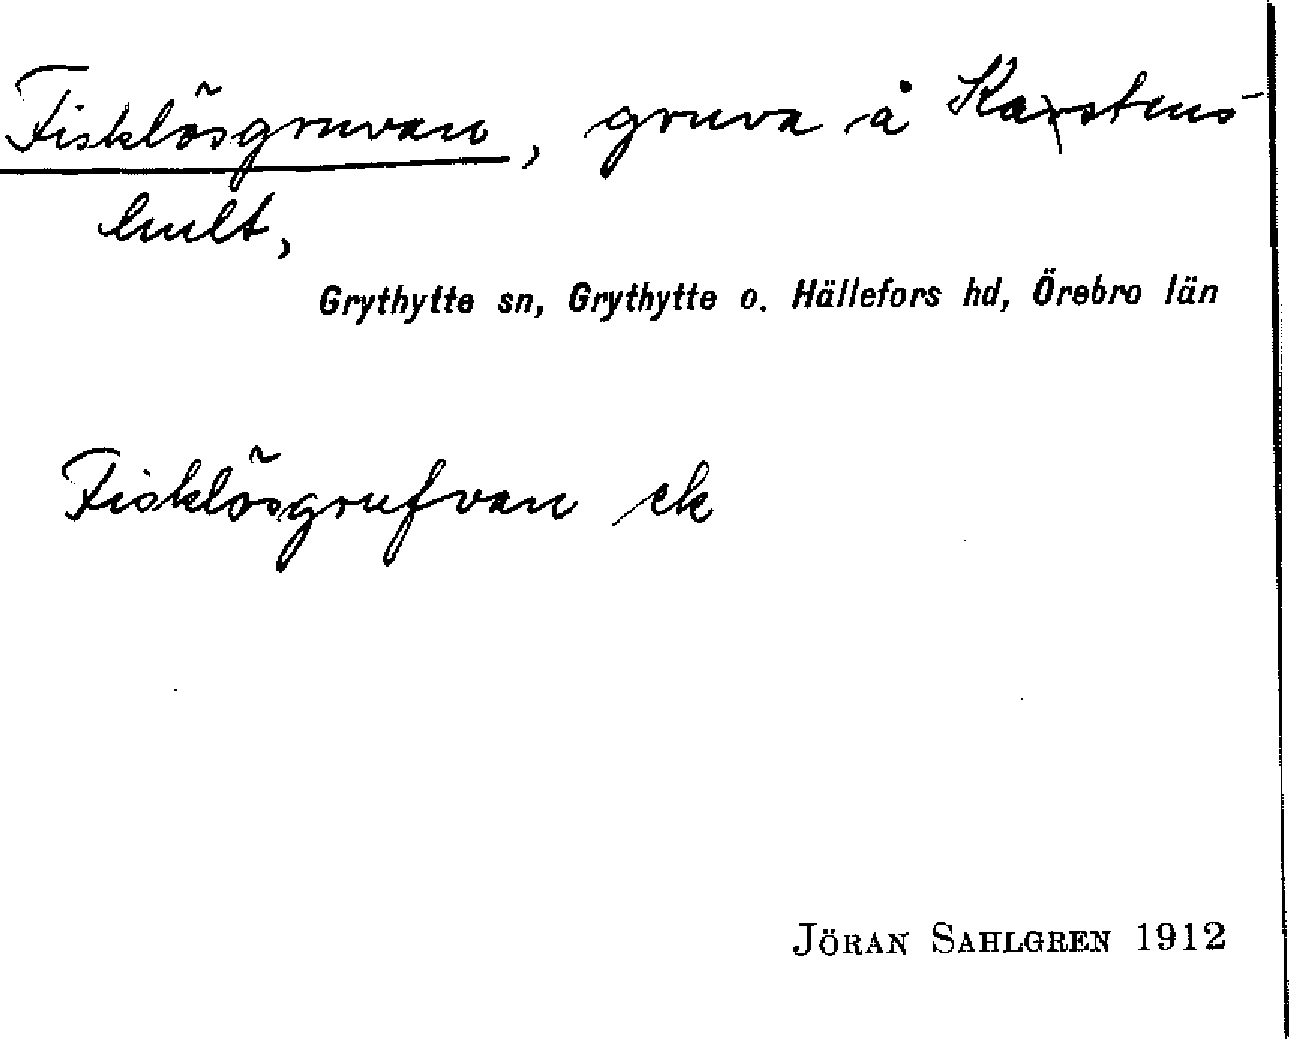 Fisklösgruvan, gruva å Karstens-
hult,
Grythytte sn, Grythytte o. Hällefors hd, Örebro län
Fisklösgrufvan ek
JÖRAN SAHLGREN 1912